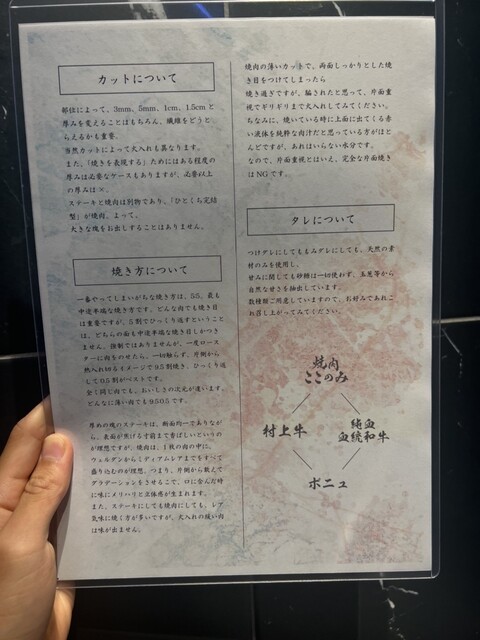 カットについて
部位によって、3mm、5mm、1cm、1.5cm と
厚みを変えることはもちろん、繊維をどうと
らえるかも重要。
当然カットによって火入れも異なります。
また、「焼きを表現する」ためにはある程度の
厚みは必要なケースもありますが、必要以上
の厚みは×。
ステーキと焼肉は別物であり、「ひとくち完結
型」が焼肉、よって、
大きな塊をお出しすることはありません。
焼き方について
一番やってしまいがちな焼き方は、55。最も
中途半端な焼き方です。どんな肉でも焼き目
は重要ですが、5割でひっくり返すということ
は、どちらの面も中途半端な焼き目しかつき
ません。強制ではありませんが、一度ロース
ターに肉をのせたら、一切触らず、片側から
熱入れ切るイメージで9.5割焼き、ひっくり返
して0.5割がベストです。
全く同じ肉でも、おいしさの次元が違います。
どんなに薄い肉でも9505です。
厚めの塊のステーキは、断面均一でありなが
ら、表面が焦げる寸前まで香ばしいというの
が理想ですが、焼肉は、1枚の肉の中に、
ウェルダンからミディアムレアまでをすべて
盛り込むのが理想。つまり、片側から敢えて
グラデーションをきさせることで、口に含んだ時
に味にメリハリと立体感が生まれます。
また、ステーキにしても焼肉にしても、レア
気味に焼く方が多いですが、火入れの緩い肉
は味が出ません。
焼肉の薄いカットで、両面しっかりとした焼
き目をつけてしまったら
焼き過ぎですが、騙されたと思って、片面重
視でギリギリまで火入れしてみてください。
ちなみに、焼いている時に上面に出てくる赤
い液体を純粋な肉汁だと思っている方がほと
んどですが、あれはいらない水分です。
なので、片面重視とはいえ、完全な片面焼き
は NG です。
タレについて
つけダレにしてももみダレにしても、天然の素
材のみを使用し、
甘みに関しても砂糖は一切使わず、玉葱等から
自然な甘さを抽出しています。
数種類ご用意していますので、お好みであれこ
れ召し上がってみてください。
焼肉
ここのみ
村上牛
純血
血統和牛
ボニュ